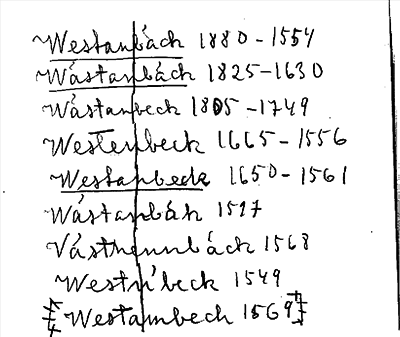 Westanbäck 1880-1554
Wästanbäck 1825-1630
Wästanbeck 1805-1749
Westenbeck 1665-1556
Westanbeck 1650-1561
Wästanbäk 1597
Västhennbäck 1568
Westn'beck 1549
[Westambech 1569]